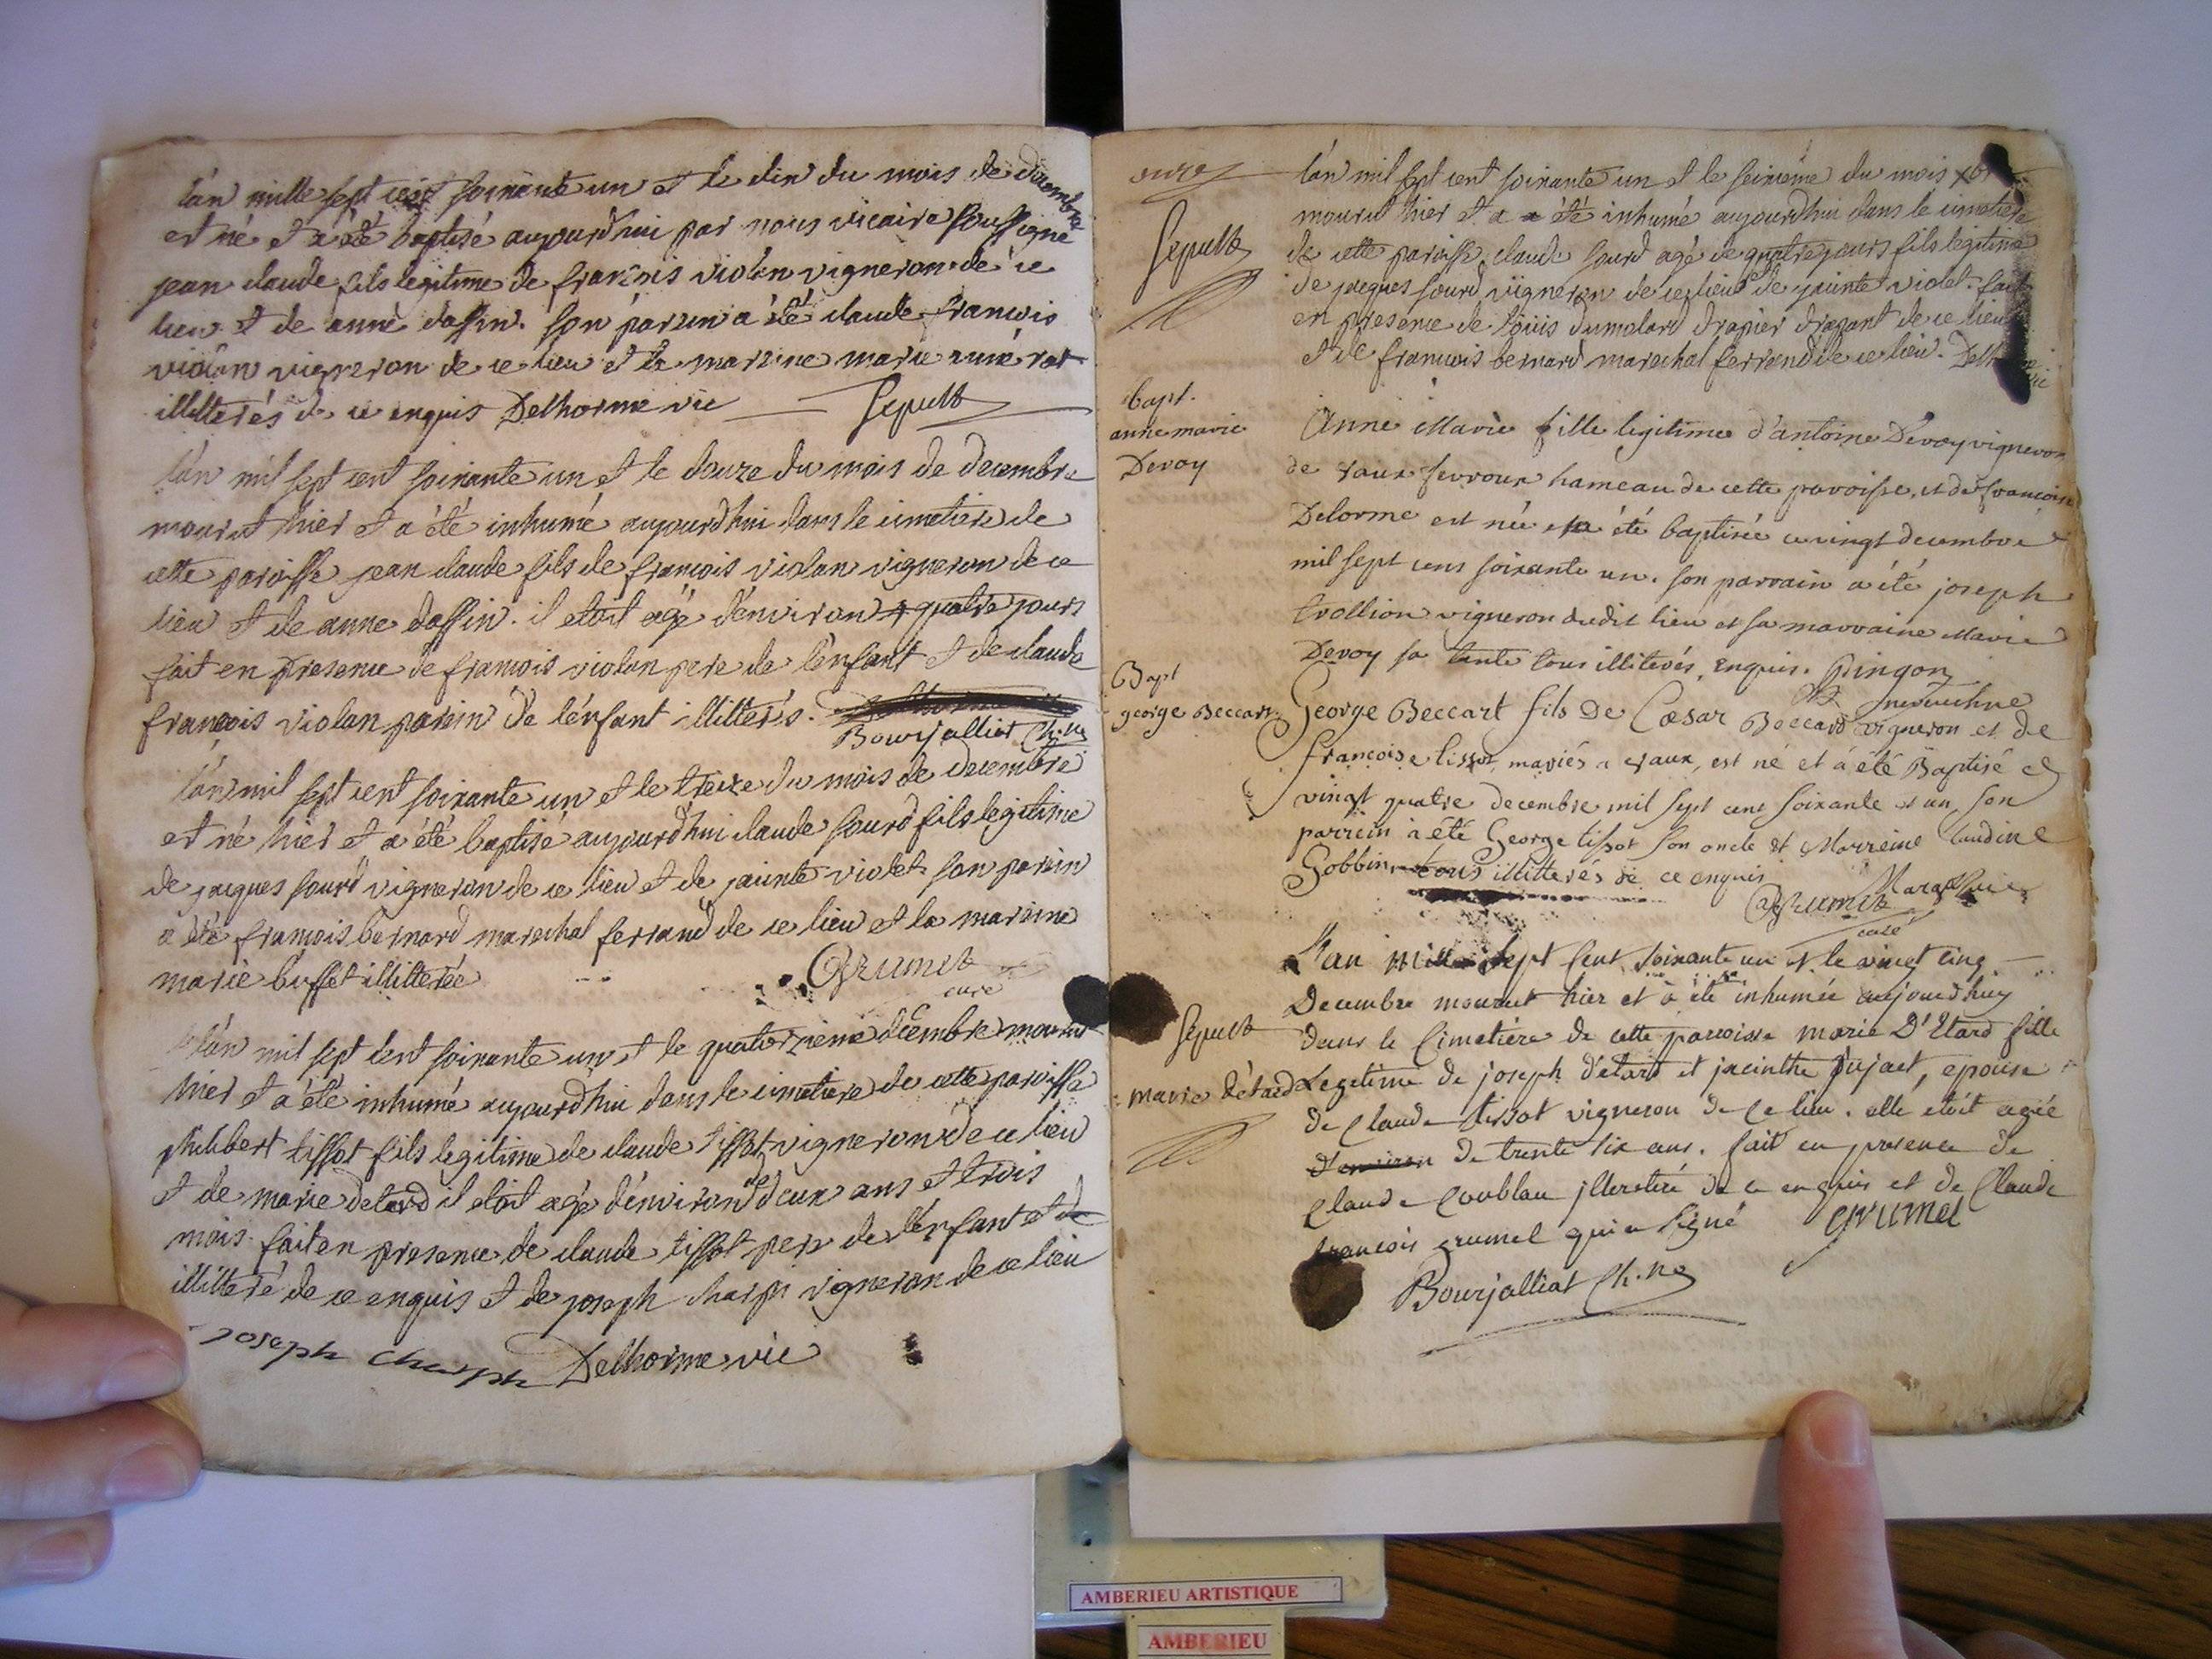 l'an mille sept cent soixante un et le dix du mois de decembre
est né et a été baptisé aujourd'hui par nous vicaire soussigné
jean claude fils legitime de francois violan vigneron de ce
lieu et de anne daffin. son parin a été claude francois
violan vigneron de ce lieu et la marine marie
illiterés de ce enquis Delhorme vic
Sepult
l'an mil sept cent soixante un et le douze du mois de decembre
mourut hier et a été inhumé aujourd'hui dans le cimetiere de
cette paroisse jean claude fils de francois violan vigneron de ce
lieu et de anne daffin. il etoit agé d'environ quatre jours
fait en presence de francois violan pere de l'enfant et de claude
francois violan parin de l'enfant illitterés.
Bourjalliat Ch.ne
l'an mil sept cent soixante un et le treize du mois de decembre
est né hier et a été baptisé aujourd'hui claude sourd fils legitime
de jacques sourd vigneron de ce lieu et de jacinte violet son parin
a été francois bernard marechal ferrand de ce lieu et la marine
marie buffet illitterée
Grumet
curé
l'an mil sept cent soixante un et le quatorzieme decembre mourut
hier et a été inhumé aujourd'hui dans le cimetiere de cette paroisse
philibert tissot fils legitime de claude tissot vigneron de ce lieu
et de marie detard il etoit agé d'environ deux ans et trois
mois. fait en presence de claude tissot pere de l'enfant et de
illitteré de ce enquis et de joseph charpi vigneron de ce lieu
joseph Delhorme vic
l'an mil sept cent soixante un et le seizieme du mois
Sepult
mourut hier et a été inhumé aujourd'hui dans le cimetiere
de cette paroisse claude sourd agé de quatre jours fils legitime
de jacques sourd vigneron de ce lieu et de jacinte violet. fait
en presence de louis dumolard drapier drapant de ce lieu
et de francois bernard marechal ferrand de ce lieu.
bapt.
anne marie
Devoy
Anne Marie fille legitime d'antoine Devoy vigneron
de vaux fevroux hameau de cette paroisse, et de francoise
Delorme est née et a été baptisée ce vingt decembre
mil sept cens soixante un. son parrain a été joseph
trollion vigneron dudit lieu et sa marraine Marie
Devoy sa tante tous illiterés, enquis. Pingon
Bapt
george Beccart
George Beccart fils De Cæsar Beccard vigneron et de
francoise tissot, mariés a vaux, est né et a été Baptisé le
vingt quatre decembre mil sept cent soixante et un, son
parrein a été George tissot son oncle et Marreine Claudine
Gobbin, tous illitterés de ce enquis
Grumet
curé
L'an mille sept cent soixante un et le vingt cinq
Decembre mourut hier et a été inhumée aujourdhuy
Sepult
marie détard
dans le Cimetière de cette paroisse marie D'Etard fille
Legetime de joseph d'etard et jacinthe pujaet, epouse
de Claude tissot vigneron de ce lieu. elle etoit agée
d'environ de trente six ans. fait en presence de
Claude Coublau illeretéré de ce enquis et de Claude
francois grumel qui a signé grumel
Bourjalliat Ch.ne
AMBERIEU ARTISTIQUE
AMBERIEU